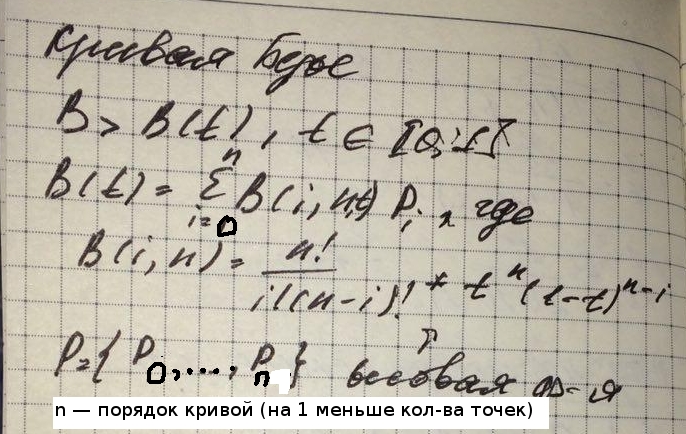 Кривая Безье
B = B(t), t ∈ [0;1]
B(t) = Σ B(i,n,t) Pᵢ, где
n
i=0
B(i,n) = n! / i!(n-i)! * tⁿ(1-t)ⁿ⁻ⁱ
P = { P₀, ..., Pₙ } весовая ф-я
n — порядок кривой (на 1 меньше кол-ва точек)